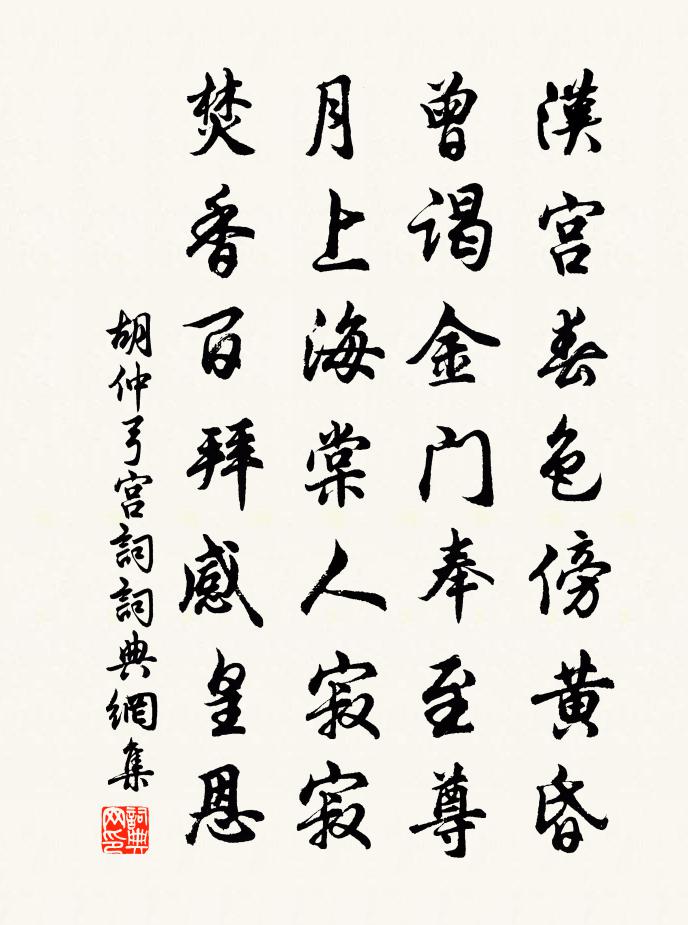 漢宮春色傍黄昏
曾谒金门奉至尊
月上海棠人寂寂
焚香百拜感皇恩
胡仲弓宮詞詞典網集
詞典网印